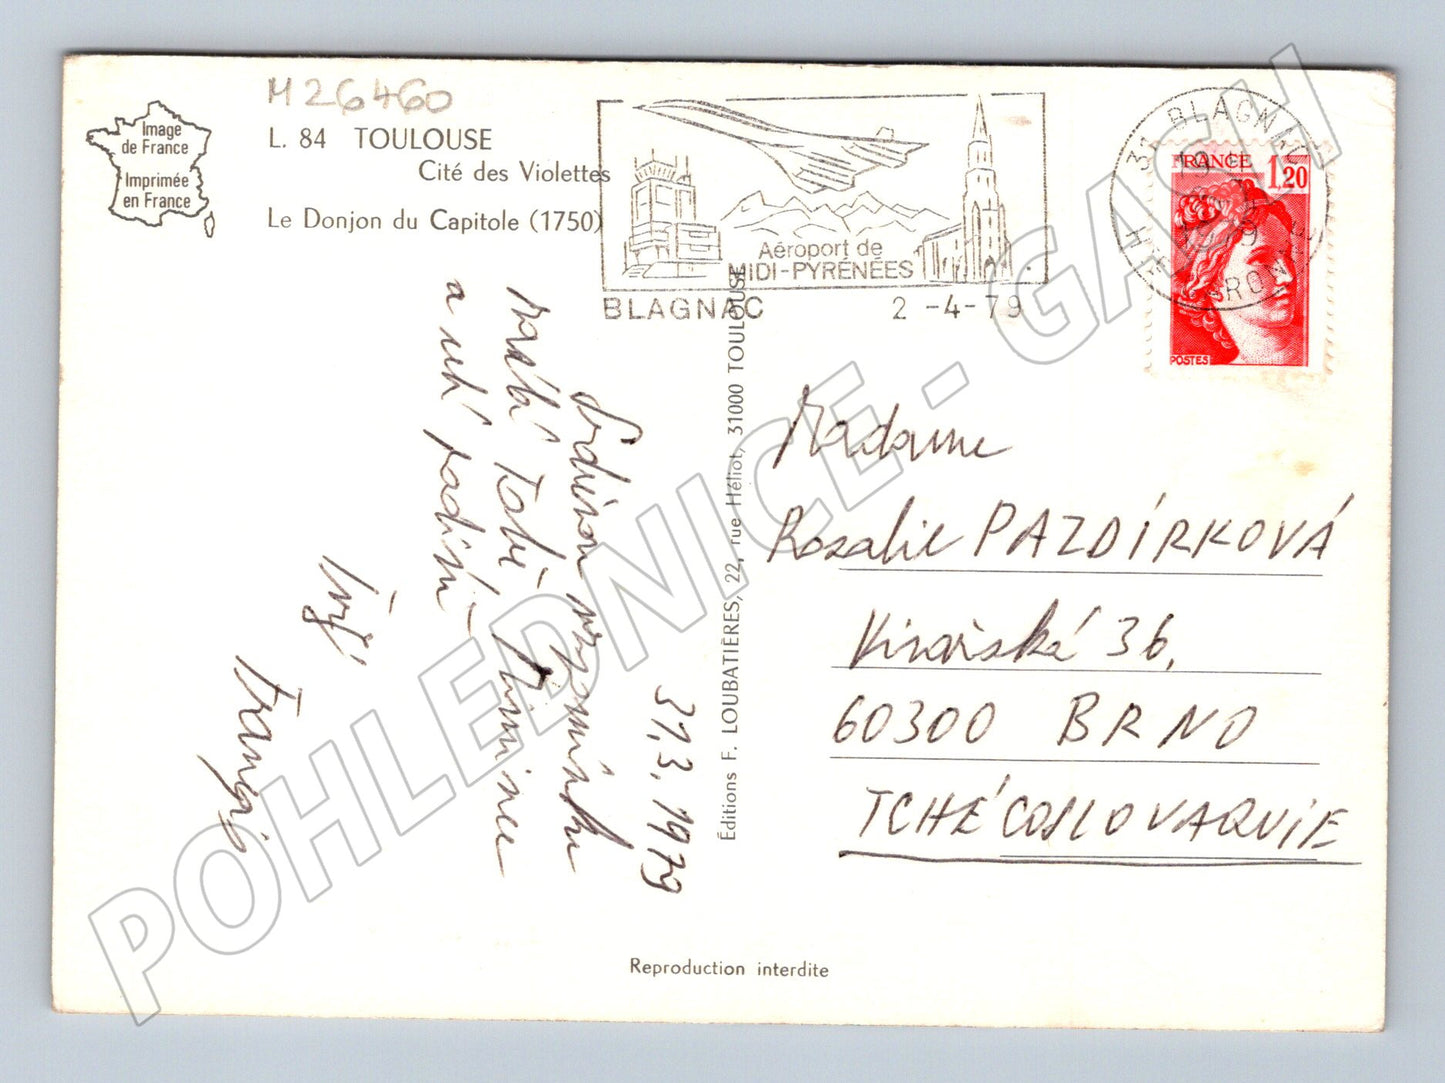 M26460
Image
de France
Imprimée
en France
L. 84 TOULOUSE
Cité des Violettes
Le Donjon du Capitole (1750)
Aéroport de
MIDI-PYRÉNÉES
BLAGNAC 2 -4-79
31 BLAGNAC
FRANCE 1,20
POSTES
31.3.1979
Srdečnou vzpomínku
posílá Tobě
a celé rodině
Éditions F. LOUBATIÈRES, 22, rue Héliot, 31000 TOULOUSE
Madame
Rozalie PAZDÍRKOVÁ
Vinařská 36,
60300 BRNO
TCHÉCOSLOVAQUIE
Reproduction interdite
POHLEDNICE - GASH